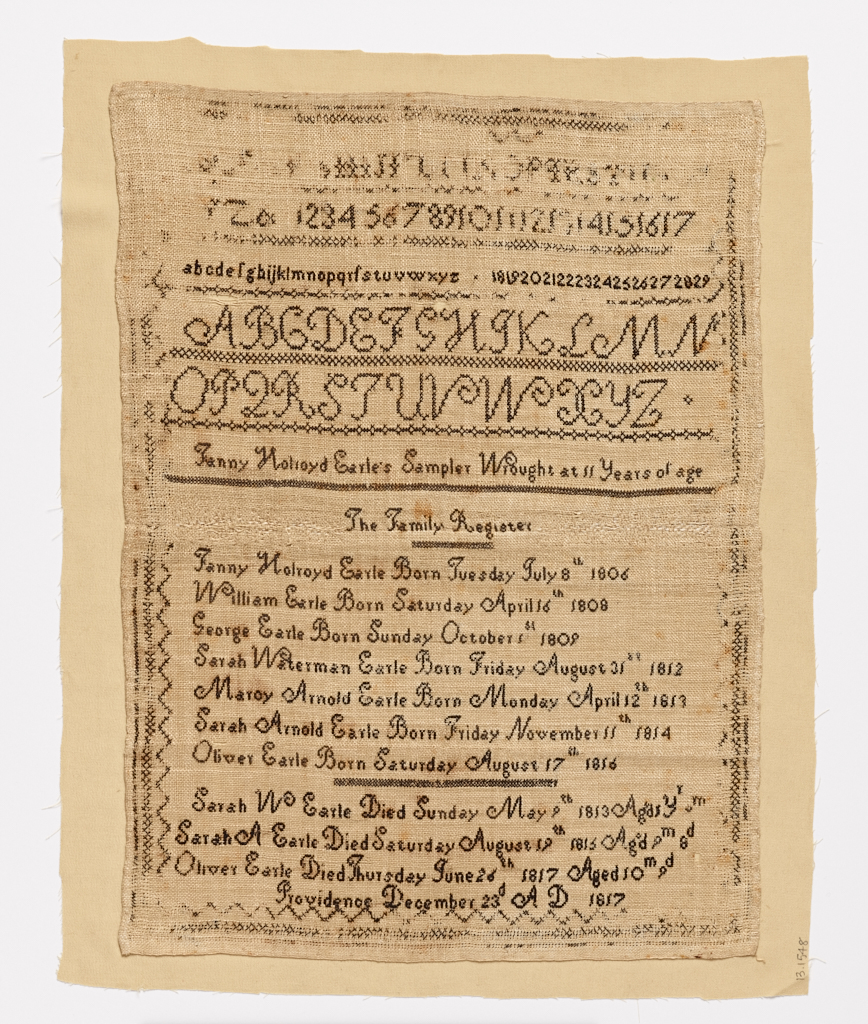 OPQRST
Z& 1234567891011121314151617
abcdefghijklmnopqrſstuvwxyz 181920212223242526272829
ABCDEFGHIKLMN
OPQRSTUVWXYZ
Fanny Holroyd Earle's Sampler Wrought at 11 Years of age
The Family Register
Fanny Holroyd Earle Born Tuesday July 8th 1806
William Earle Born Saturday April 16th 1808
George Earle Born Sunday October 1st 1809
Sarah Waterman Earle Born Friday August 31st 1812
Marcy Arnold Earle Born Monday April 12th 1813
Sarah Arnold Earle Born Friday November 11th 1814
Oliver Earle Born Saturday August 17th 1816
Sarah W Earle Died Sunday May 9th 1813 Aged
Sarah A Earle Died Saturday August 19th 1815 Agd 9m 8d
Oliver Earle Died Thursday June 26th 1817 Aged 10m 9d
Providence December 23d A D 1817
13.1548